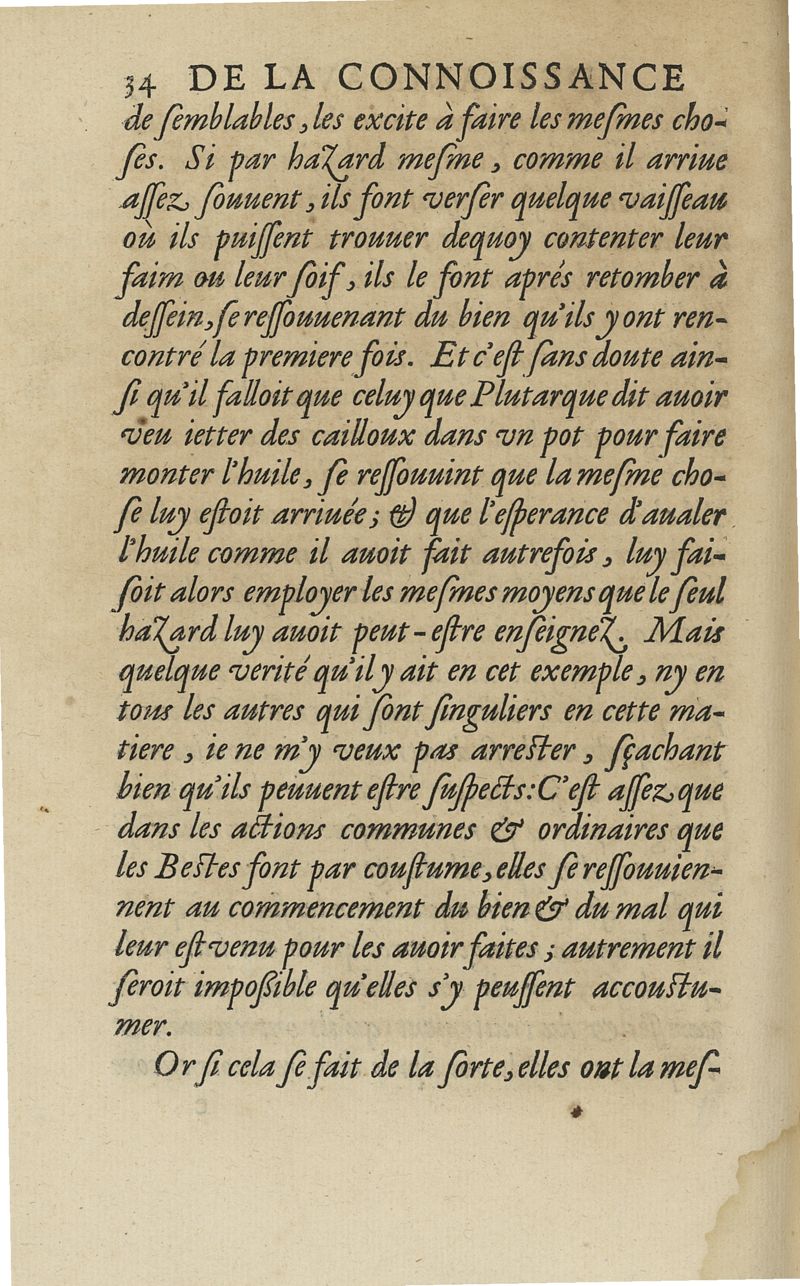 34 DE LA CONNOISSANCE
de ſemblables, les excite à faire les meſmes cho-
ſes. Si par hazard meſme, comme il arriue
aſſez ſouuent, ils font verſer quelque vaiſſeau
où ils puiſſent trouuer dequoy contenter leur
faim ou leur ſoif, ils le font aprés retomber à
deſſein, ſe reſſouuenant du bien qu'ils y ont ren-
contré la premiere fois. Et c'eſt ſans doute ain-
ſi qu'il falloit que celuy que Plutarque dit auoir
veu ietter des cailloux dans vn pot pour faire
monter l'huile, ſe reſſouuint que la meſme cho-
ſe luy eſtoit arriuée; & que l'eſperance d'aualer
l'huile comme il auoit fait autrefois, luy fai-
ſoit alors employer les meſmes moyens que le ſeul
hazard luy auoit peut-eſtre enſeignez. Mais
quelque verité qu'il y ait en cet exemple, ny en
tous les autres qui ſont ſinguliers en cette ma-
tiere, ie ne m'y veux pas arreſter, ſçachant
bien qu'ils peuuent eſtre ſuſpects: C'eſt aſſez que
dans les actions communes & ordinaires que
les Beſtes font par couſtume, elles ſe reſſouuien-
nent au commencement du bien & du mal qui
leur eſt venu pour les auoir faites; autrement il
ſeroit impoſſible qu'elles s'y peuſſent accouſtu-
mer.
Or ſi cela ſe fait de la ſorte, elles ont la meſ-